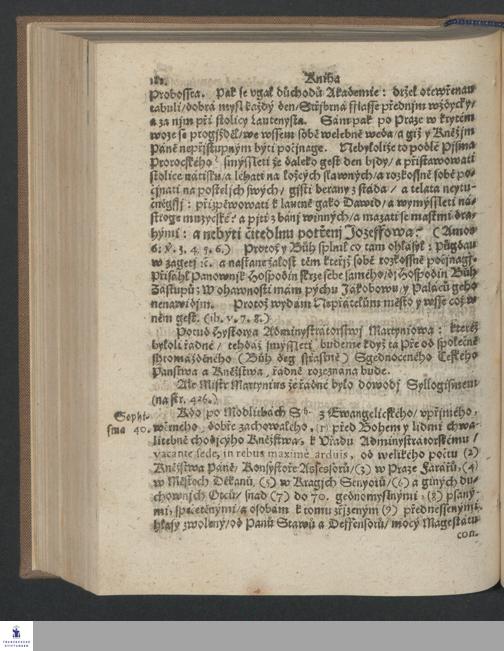 182. Kniha
Probossta. Pak se vgal důchodů Akademie: držel otewřenau
tabuli/dobrá mysl každý den/Stříbrná fflasse přednjm wždycky/
a za njm při stolicy Lautenysta. Sám pak po Praze w krytém
woze se progjžděl/we wssem sobě welebně weda/a giž y Kněžjm
Páně nepřjstupným býti počjnage. Nebyloliž to podlé Pjsma
Prorockého/ smýssleti že daleko gest den bjdy/a přistawowati
stolice nátisku/a léhati na ložcých slawných/a rozkossně sobě po-
čjnati na posteljch swých/gjsti berany z stáda/a telata neytu-
čněgssj: přizpěwowati k lautně gako Dawid/a wymýssleti ná-
stroge muzycké? a pjti z bánj winných/a mazati se mastmi dra-
hými: a nebýti čitedlnu potřenj Jozeffowa? (Amos
6: v. 3. 4. 5. 6.) Protož y Bůh splnil co tam ohlásyl: Půgdau
w zagetj ꝛc. a nastane žalost těm kteřjž sobě rozkossně počjnagj.
Přisáhl Panownjk Hospodin skrze sebe samého/dj Hospodin Bůh
Zástupů: W ohawnosti mám pýchu Jákobowu/y Paláců geho
nenawidjm. Protož wydám Nepřátelům město y wsse což w
něm gest. (ib. v. 7. 8.)
Potud Hystorya Administrátorstwj Martyniowa: kteréž
byloli řádné/ tehdáž smýssleti budeme když ta při od společně
shromážděného (Bůh deg sstiastně) Sgednoceného Českého
Panstwa a Kněžstwa, řádně rozeznána bude.
Ale Mistr Martynius že řádné bylo dowodj Syllogismem
(na str. 426.)
Sophi-
sma 40.
Kdo po Modlitbách S. z Ewangelického/ vpřjmého,
wěrného, dobře zachowalého, (1) před Bohem y lidmi chwa-
litebně chodjcyho Kněžstwa, k Vřadu Administrátorskému/
vacante sede, in rebus maximè arduis, od welikého počtu (2)
Kněžstwa Páně/ Konsystoře Assesorů/(3) w Praze Farářů,(4)
w Městech Děkanů, (5) w Kragjch Senyorů/(6) a giných du-
chownjch Otců/ snad (7) do 70. gednomyslnými, (8) psaný-
mi, spečetěnými/a osobám k tomu zřjzeným (9) přednessenými,
hlasy zwolený/od Panů Stawů a Deffensorů/ mocý Magestátu
con.